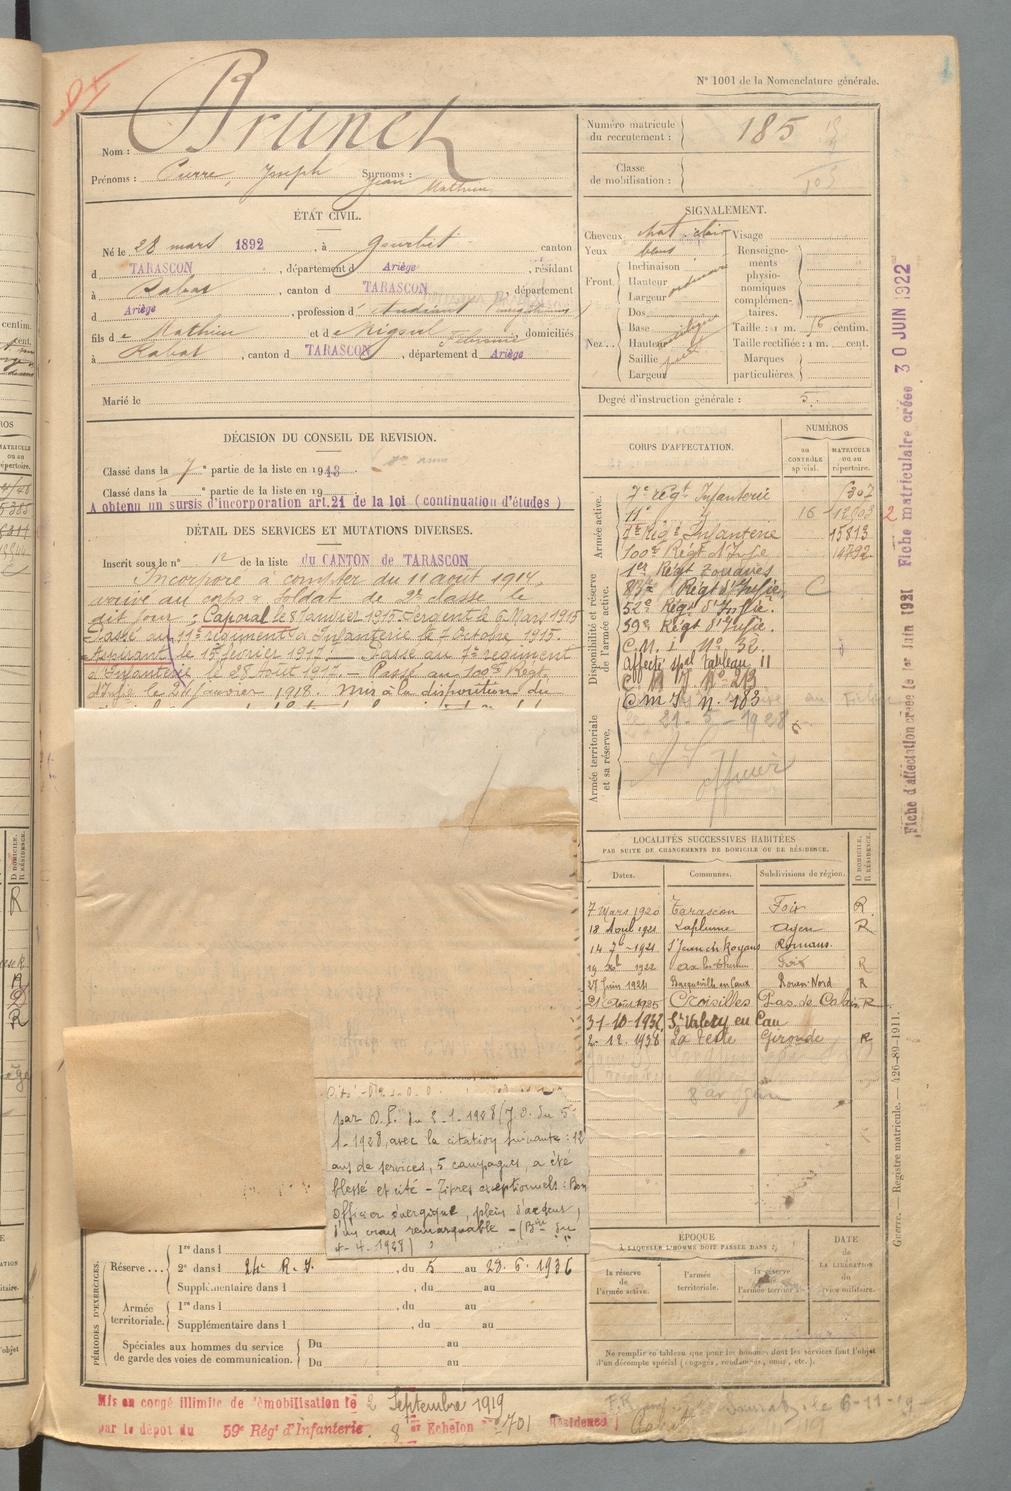 N° 1001 de la Nomenclature générale.
Nom : Brunet
Prénoms : Pierre, Joseph Surnoms : Jean Mathieu
Numéro matricule du recrutement : 185
Classe de mobilisation :
ÉTAT CIVIL.
Né le 28 mars 1892, à Gourbit canton
d TARASCON, département d Ariège, résidant
à Rabat, canton d TARASCON, département
d Ariège, profession d' étudiant
fils de Mathieu et de Rigoul domiciliés
à Rabat, canton d TARASCON, département d Ariège
Marié le
SIGNALEMENT.
Cheveux chat. clair Visage
Yeux bleus
Front. Inclinaison
Hauteur ordinaire
Largeur
Nez.. Dos
Base
Hauteur
Saillie
Largeur
Renseignements physionomiques complémentaires.
Taille : 1 m. centim.
Taille rectifiée : 1 m. cent.
Marques particulières.
Degré d'instruction générale : 5.
DÉCISION DU CONSEIL DE REVISION.
Classé dans la 7e partie de la liste en 1913
Classé dans la e partie de la liste en 19
A obtenu un sursis d'incorporation art. 21 de la loi (continuation d'études)
DÉTAIL DES SERVICES ET MUTATIONS DIVERSES.
Inscrit sous le n° 12 de la liste du CANTON de TARASCON
Incorporé à compter du 11 août 1914,
arrivé au corps & soldat de 2e classe le
dit jour ; Caporal le 8 Janvier 1915 Sergent le 6 Mars 1915
Passé au 11e régiment d'Infanterie le 7 octobre 1915.
Aspirant le 1er février 1917. — Passé au 7e régiment
d'Infanterie le 28 Août 1917. — Passé au 100e Régt
d'Infie le 24 Janvier 1918. Mis à la disposition du
CORPS D'AFFECTATION.
NUMÉROS
au CONTRÔLE spécial.
MATRICULE ou au répertoire.
Armée active.
7e régt Infanterie
11e 16
7e Régt Infanterie 15813
100e Régt d'Infie 14792
Disponibilité et réserve de l'armée active.
1er Régt Zouaves
83e Régt d'Infie C
52e Régt d'Infie.
59e Régt d'Infie.
C.M. I N° 32.
Affecté spel tableau 11
C M I N° 213
C m I n. 183
Armée territoriale et sa réserve.
21-5-1928
officier
LOCALITÉS SUCCESSIVES HABITÉES
PAR SUITE DE CHANGEMENTS DE DOMICILE OU DE RÉSIDENCE.
Dates. Communes. Subdivisions de région. D DOMICILE. R RÉSIDENCE.
7 Mars 1920 Tarascon Foix R
18 Avril 1921 Laplume Agen R
14 7bre 1921 St Jean en Royans Romans
1922 Ax les Thermes Foix R
27 Juin 1924 Bacqueville en Caux Rouen-Nord R
21 Août 1925 Croisilles Pas de Calais R
31-10-1932 St Valery en Caux
2.12.1938 La Teste Gironde R
par D.P. du 2-1-1928 (J.O. du 5-
1-1928, avec la citation suivante : 12
ans de services, 5 campagnes, a été
blessé et cité - Titres exceptionnels : Bon
officier énergique, plein d'ardeur,
d'un crâne remarquable - (
4-4-1928)
PÉRIODES D'EXERCICES.
Réserve... 1re dans l , du au
2e dans l 24e R.I. , du 5 au 23.6.1936
Supplémentaire dans l , du au
Armée territoriale. 1re dans l , du au
Supplémentaire dans l , du au
Spéciales aux hommes du service de garde des voies de communication. Du au
Du au
EPOQUE
À LAQUELLE L'HOMME DOIT PASSER DANS :
la réserve de l'armée active.
l'armée territoriale.
la réserve de l'armée territoriale
DATE de LA LIBÉRATION du service militaire.
Ne remplir ce tableau que pour les hommes dont les services font l'objet
d'un décompte spécial (engagés, rendus, omis, etc.).
Mis en congé illimité de démobilisation le 2 Septembre 1919
par le dépôt du 59e Régt d'Infanterie. 8 Echelon n° 701 Résidence
6-11-19
Fiche d'affectation créée le 1er Juin 1921 Fiche matriculaire créée 30 JUIN 1922
Guerre. — Registre matricule. — 426-89-1911.